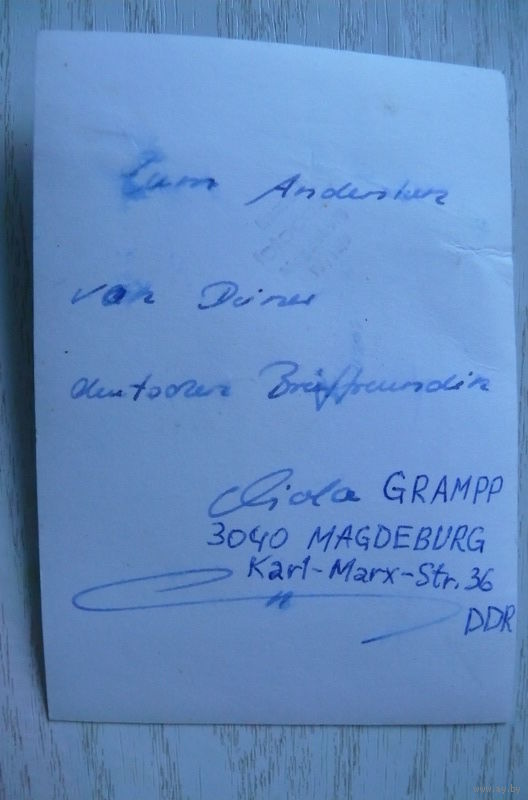 Zum Andenken
von Deiner
deutschen Brieffreundin
Viola GRAMPP
3040 MAGDEBURG
Karl-Marx-Str. 36
DDR
www.ay.by